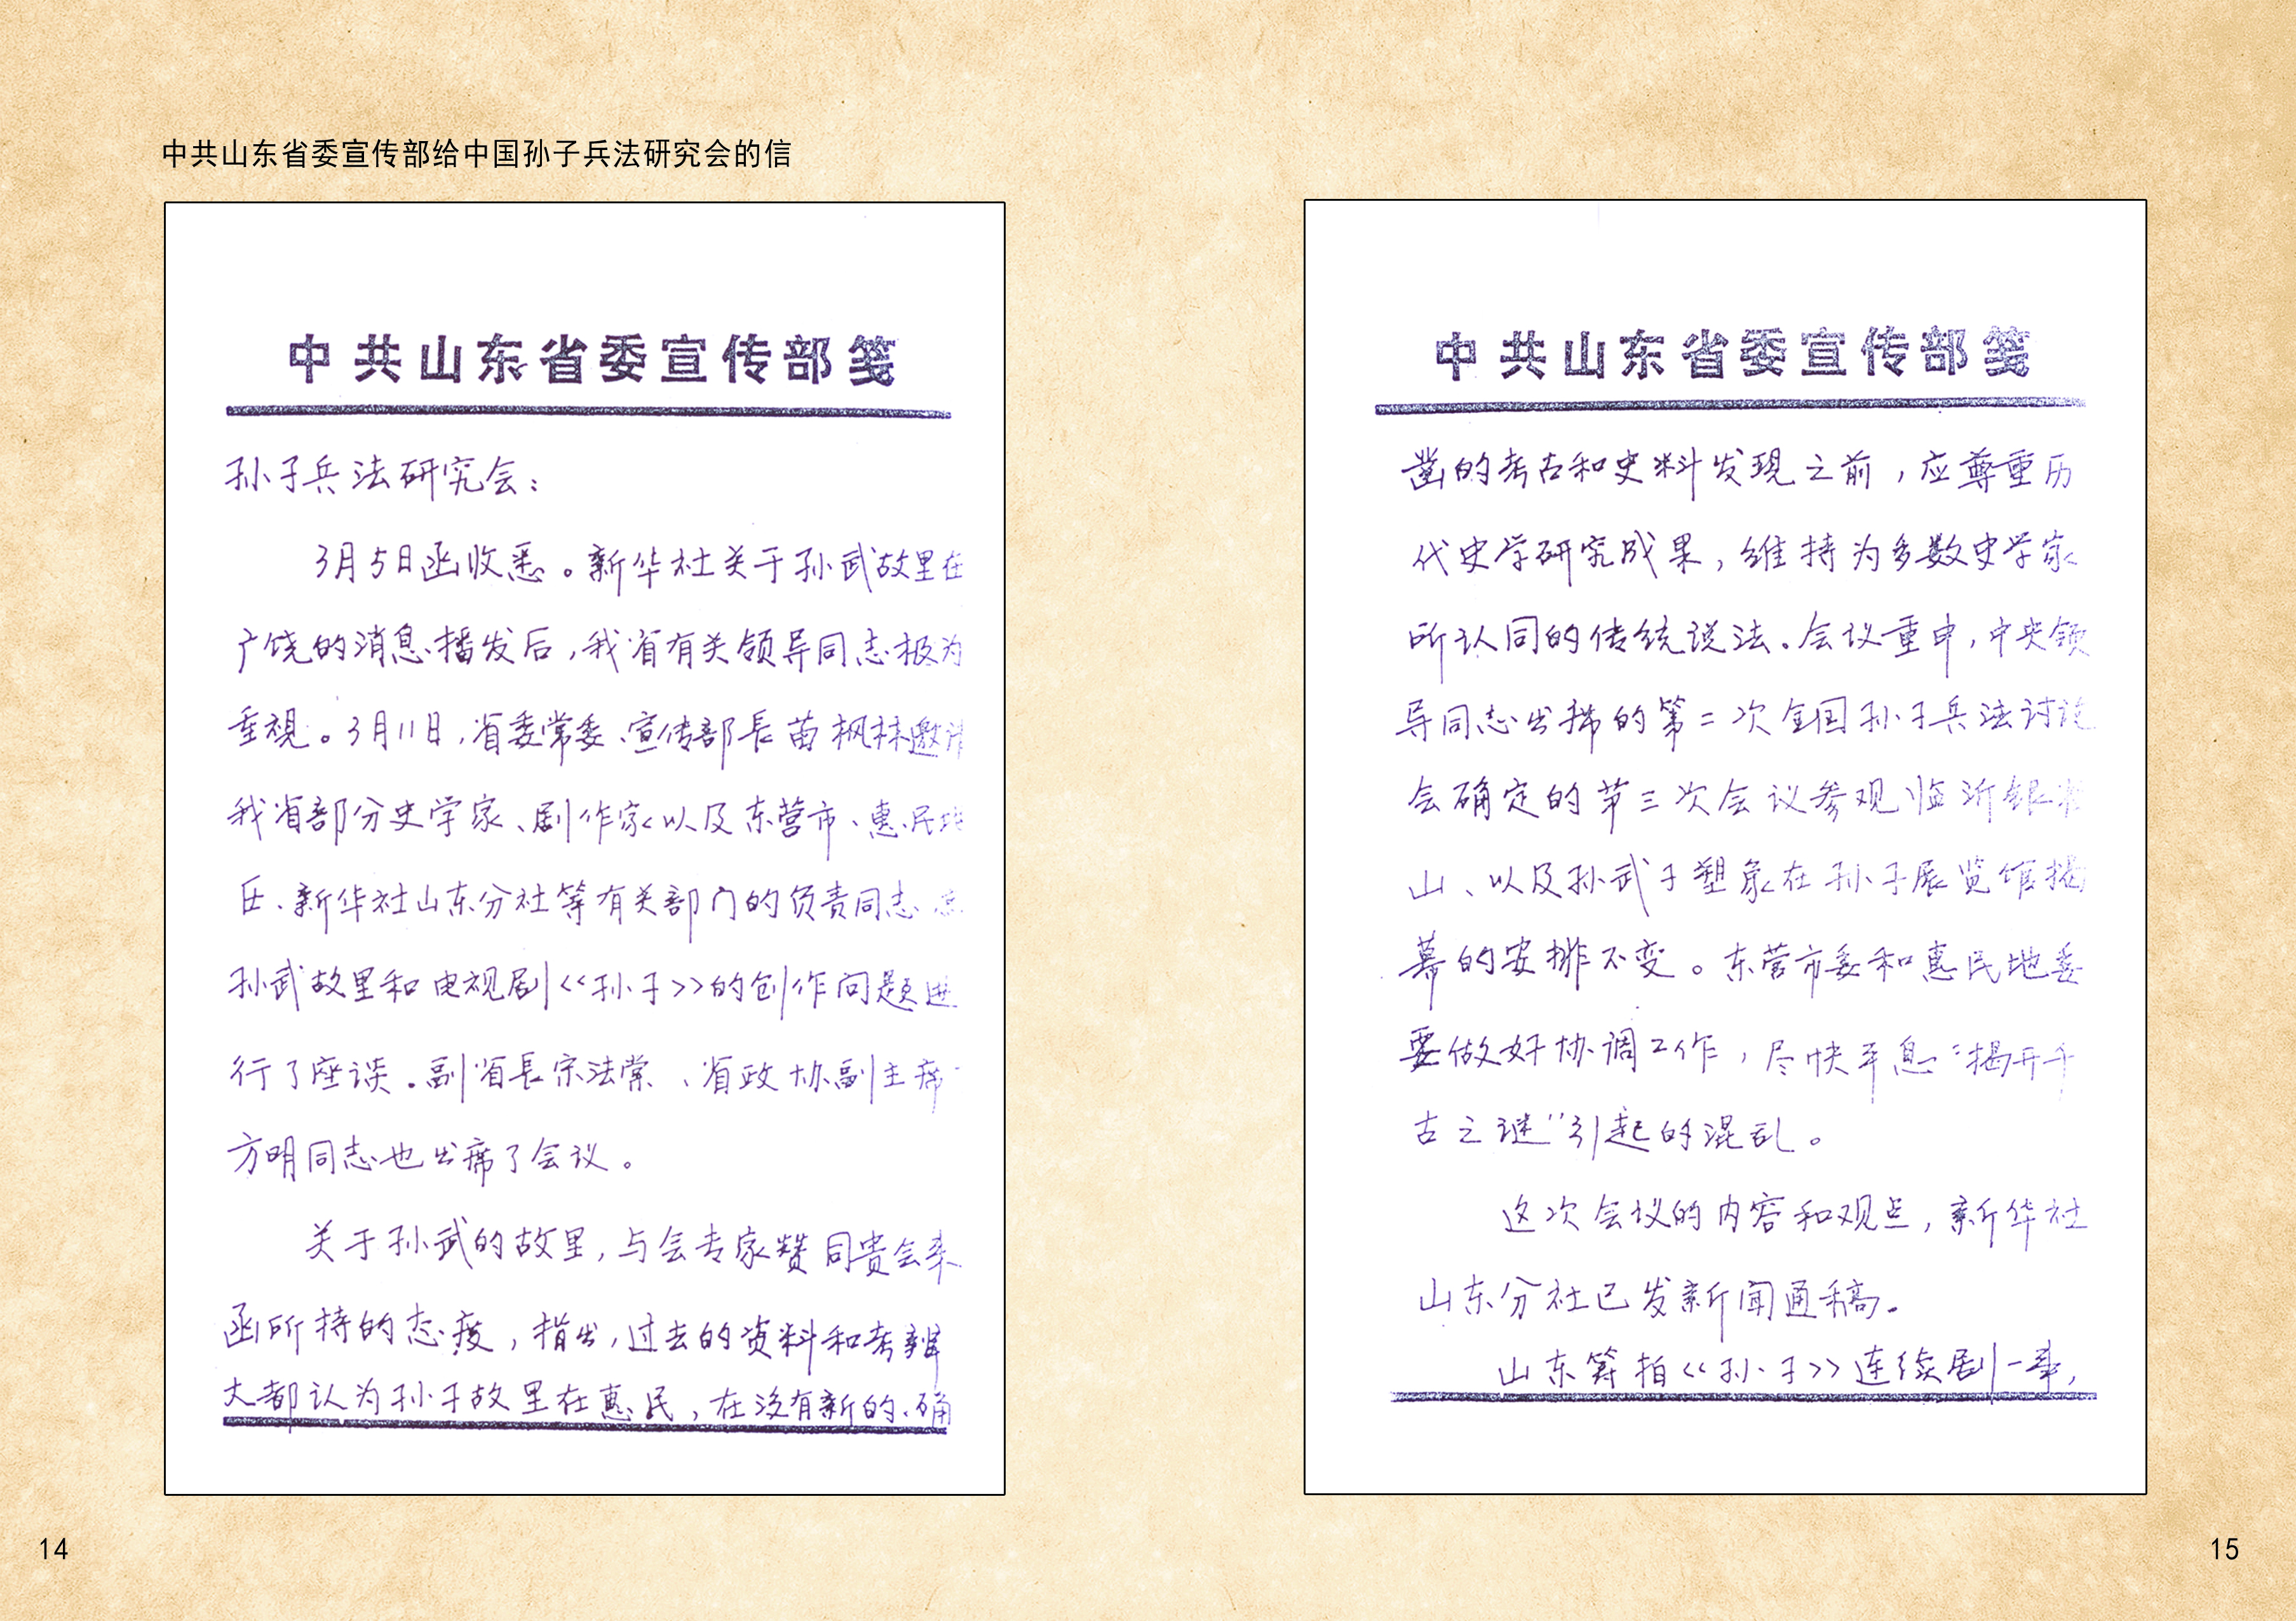 中共山东省委宣传部给中国孙子兵法研究会的信
中共山东省委宣传部笺
孙子兵法研究会：
3月5日函收悉。新华社关于孙武故里在
广饶的消息播发后，我省有关领导同志极为
重视。3月11日，省委常委、宣传部长苗枫林邀请
我省部分史学家、剧作家以及东营市、惠民地
区、新华社山东分社等有关部门的负责同志
孙武故里和电视剧《孙子》的创作问题进
行了座谈。副省长宋法棠、省政协副主席
方明同志也出席了会议。
关于孙武的故里，与会专家赞同贵会来
函所持的态度，指出，过去的资料和考辨
大都认为孙子故里在惠民，在没有新的、确
14
中共山东省委宣传部笺
凿的考古和史料发现之前，应尊重历
代史学研究成果，维持为多数史学家
所认同的传统说法。会议重申，中央领
导同志出席的第二次全国孙子兵法讨论
会确定的第三次会议参观临沂银雀
山、以及孙武子塑象在孙子展览馆揭
幕的安排不变。东营市委和惠民地委
要做好协调工作，尽快平息“揭开千
古之谜”引起的混乱。
这次会议的内容和观点，新华社
山东分社已发新闻通稿。
山东筹拍《孙子》连续剧一事，
15